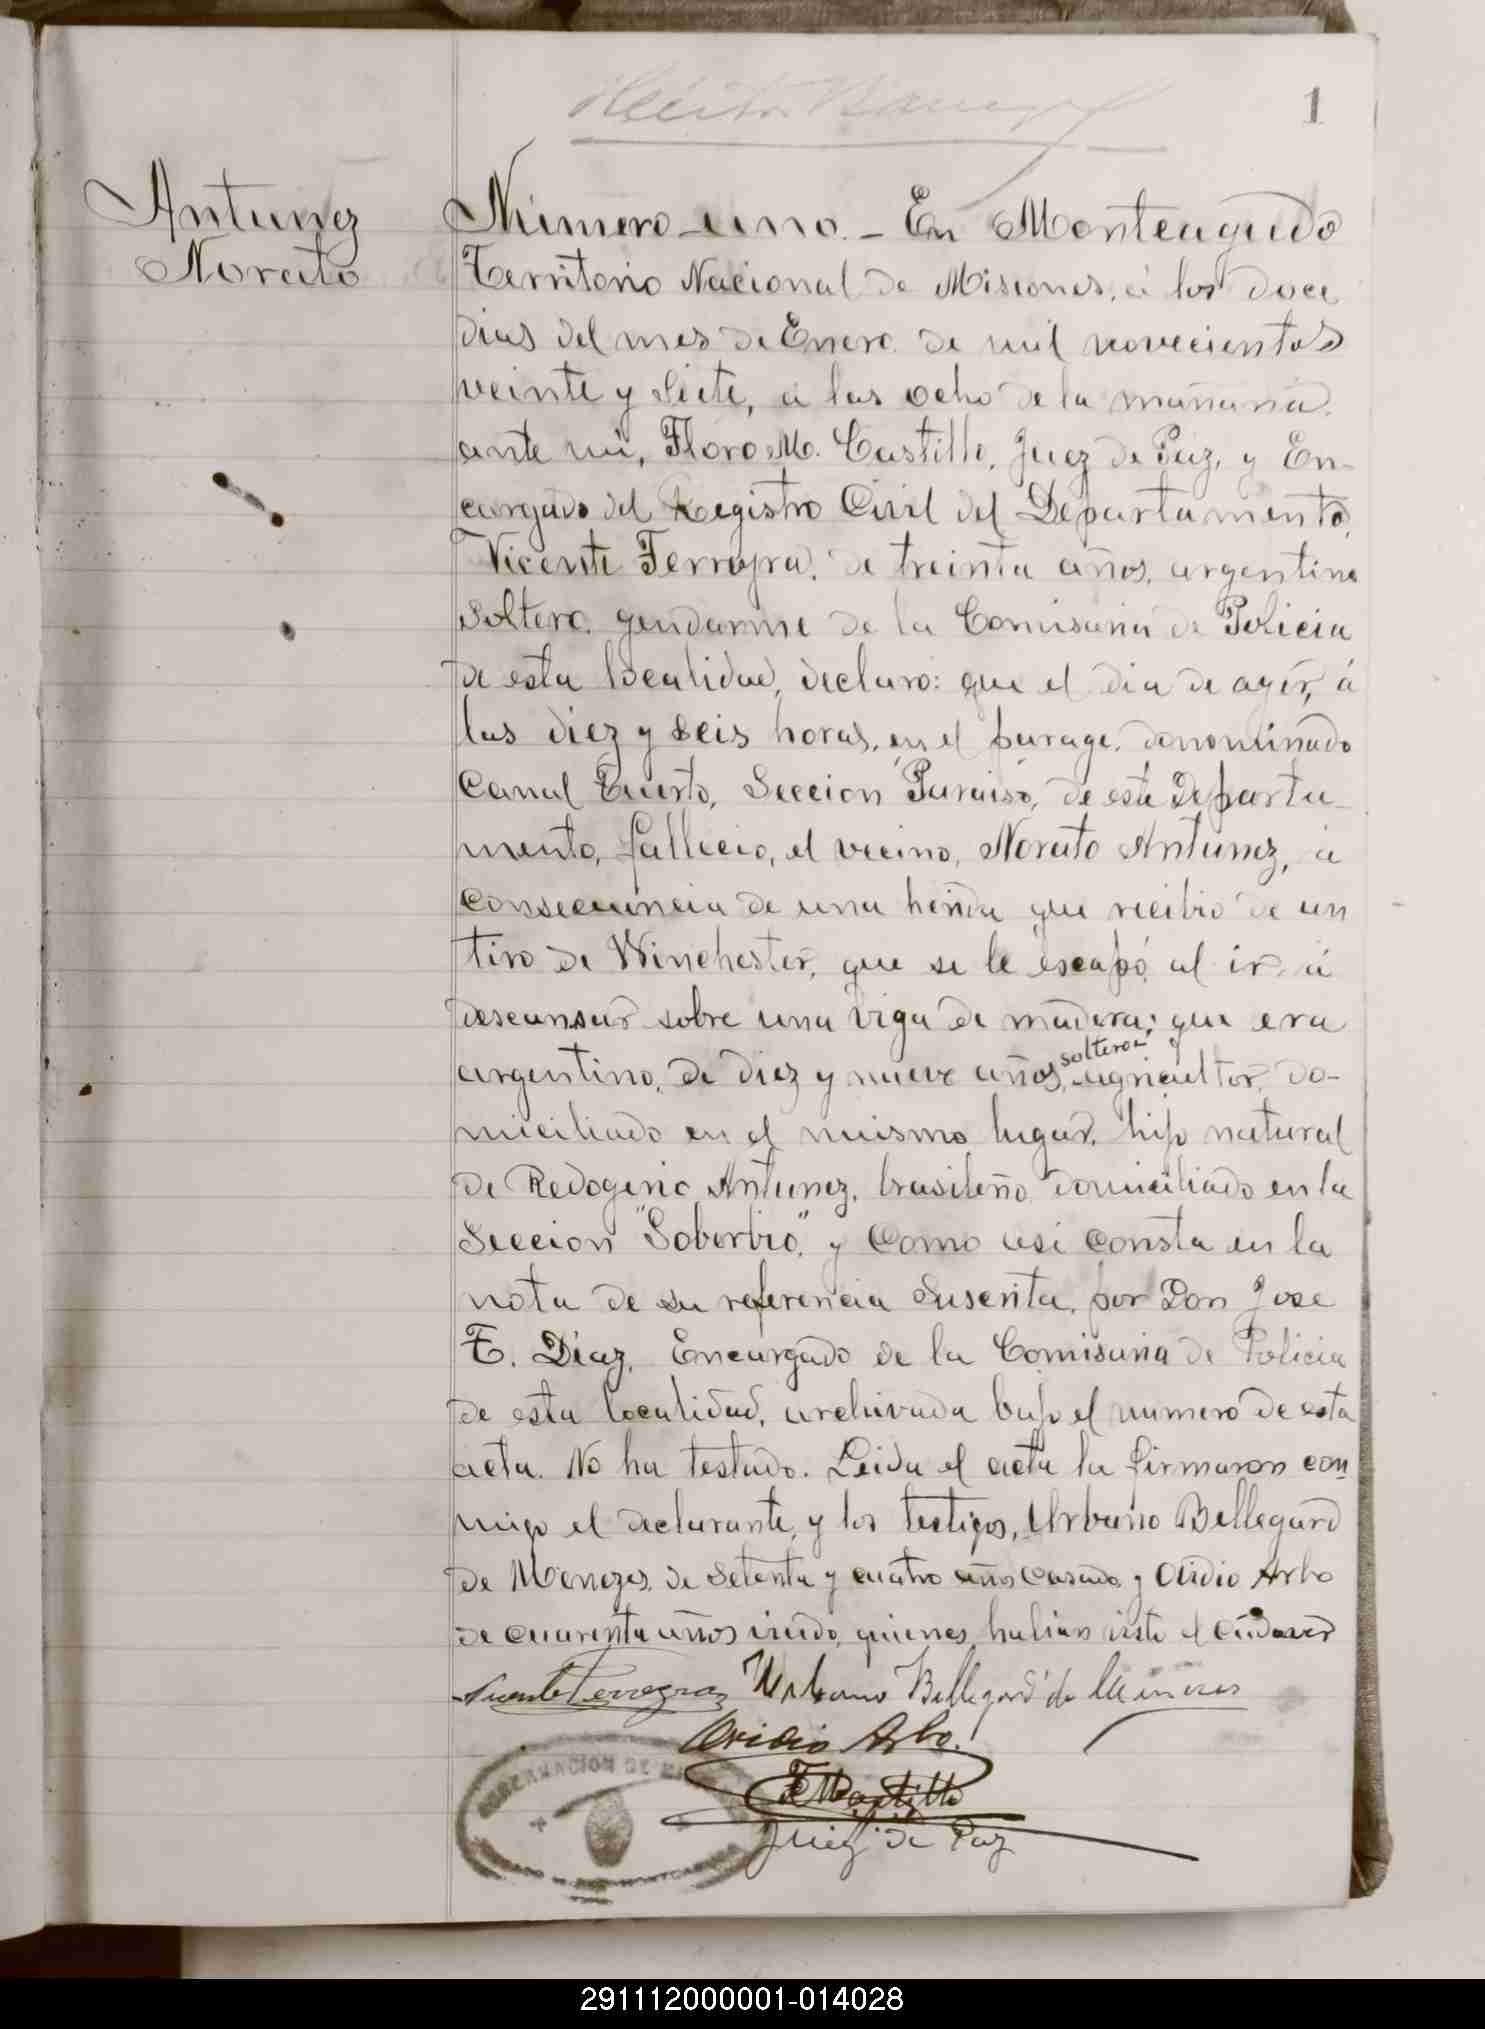 1
Antunez
Norato
Número uno. - En Monteagudo
Territorio Nacional de Misiones, á los doce
dias del mes de Enero de mil novecientos
veinte y siete, á las ocho de la mañana.
ante mi, Floro M. Castillo, Juez de Paz, y En-
cargado del Registro Civil del Departamento,
Vicente Ferreyra, de treinta años, argentino
soltero, gendarme de la Comisaria de Policia
de esta localidad, declaro: que el dia de ayer, á
las diez y seis horas, en el parage denominado
Canal Tuerto, Seccion Paraiso, de este Departa-
mento, fallecio, el vecino, Norato Antunez, á
consecuencia de una herida que recibio de un
tiro de Winchester, que se le escapó al ir á
descansar sobre una viga de madera; que era
argentino, de diez y nueve años, soltero, agricultor, do-
miciliado en el mismo lugar, hijo natural
de Redogerio Antunez, brasileño domiciliado en la
Seccion "Soberbio", y como asi consta en la
nota de su referencia suscrita, por Don Jose
T. Diaz, Encargado de la Comisaria de Policia
de esta localidad, archivada bajo el numero de esta
acta. No ha testado. Leida el acta la firmaron con
migo el declarante, y los testigos, Urbano Bellegard
de Menezes, de setenta y cuatro años casado, y Ovidio Arbo
de cuarenta años viudo, quienes habian visto el cadaver
Vicente Ferreyra Urbano Bellegard de Menezes
Ovidio Arbo.
F M Castillo
Juez de Paz
GOBERNACION DE
291112000001-014028